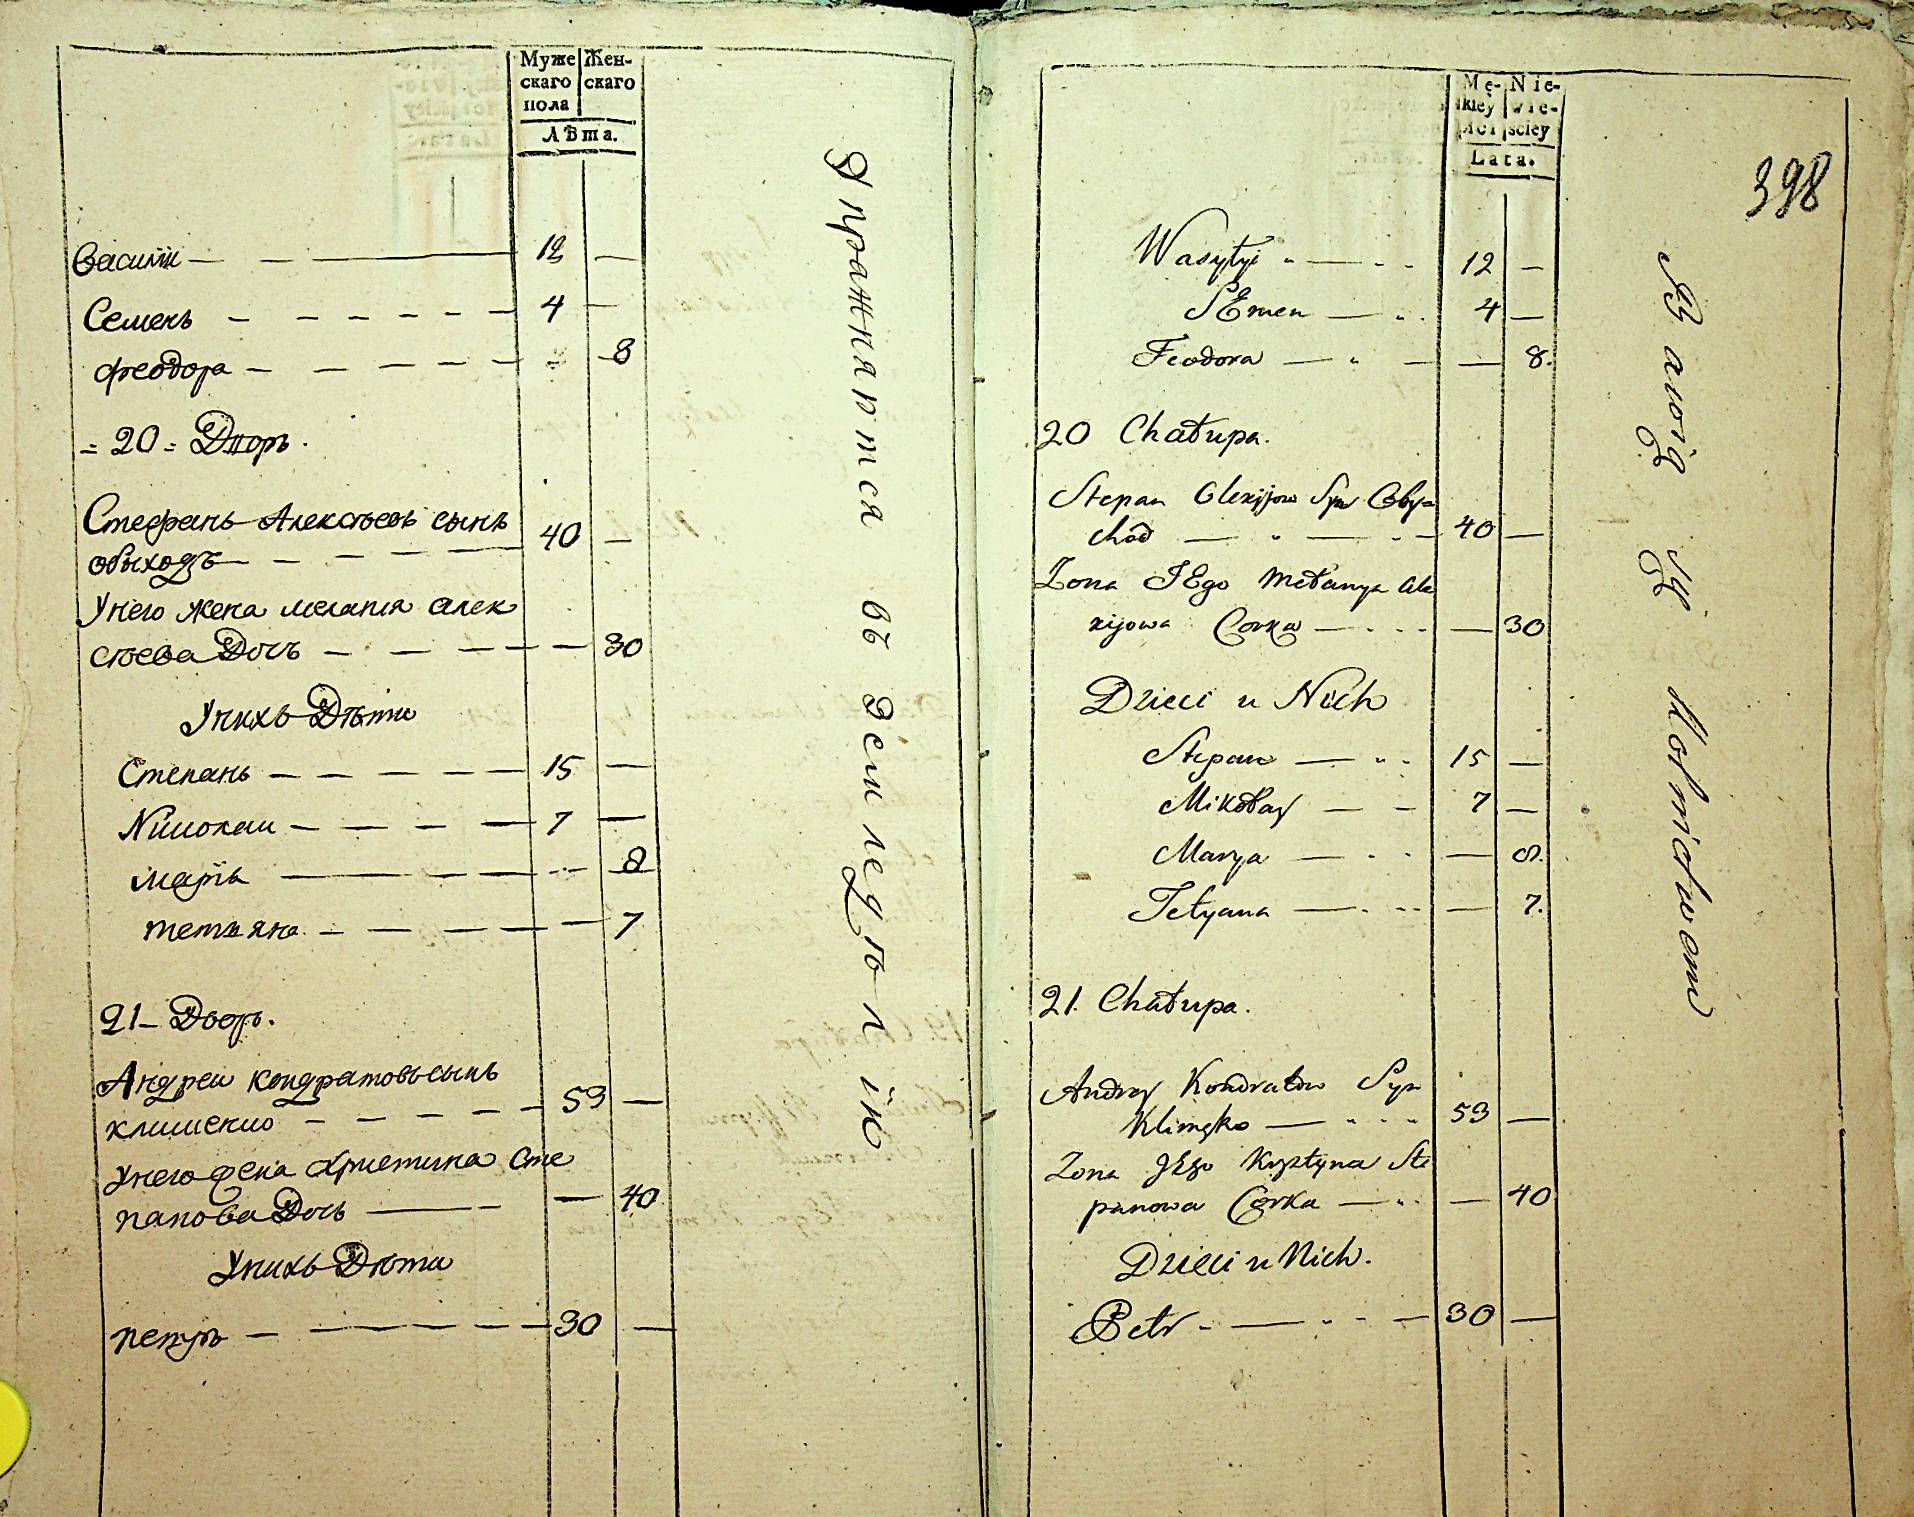 Муже Жен-
скаго скаго
пола
Лѣта.
Василïи 12
Семенъ 4
феодора 8
= 20 = Дворъ.
Стефанъ Алексѣевъ сынъ 40
обыходъ
Унего жена мелания алек
сѣева Дочъ 30
Унихъ Дѣти
Степанъ 15
Николаи 7
маръя 8
тетьяна 7
21 - Дворъ.
Андреи кондратовъ сынъ
клименко 53
Унего жена христина сте
панова Дочь 40
Унихъ Дѣти
петръ 30
Упражнаютса въ Земледѣлïю
Mę- Nie-
kiey wie-
płci sciey
Lata.
398
Wasyłyi 12
SEmen 4
Feodora 8.
20 Chałupa.
Stepan Olexijow Syn Oby=
chod 40
Zona JEgo Mełanya Ale
xijowa Corka 30
Dzieci u Nich
Stepan 15
Mikołay 7
Marya 8.
Tetyana 7.
21. Chałupa.
Andrey Kondratow Syn
Klimęko 53
Zona JEgo Krysztyna Ste
panowa Corka 40
Dzieci u Nich.
Petr 30
Bawią Się Rolnictwem